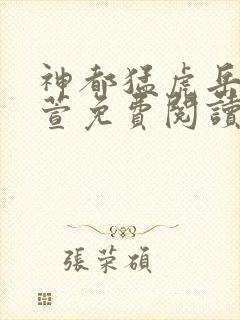 神都猛虎岳
萱免費閱讀
張荣碩